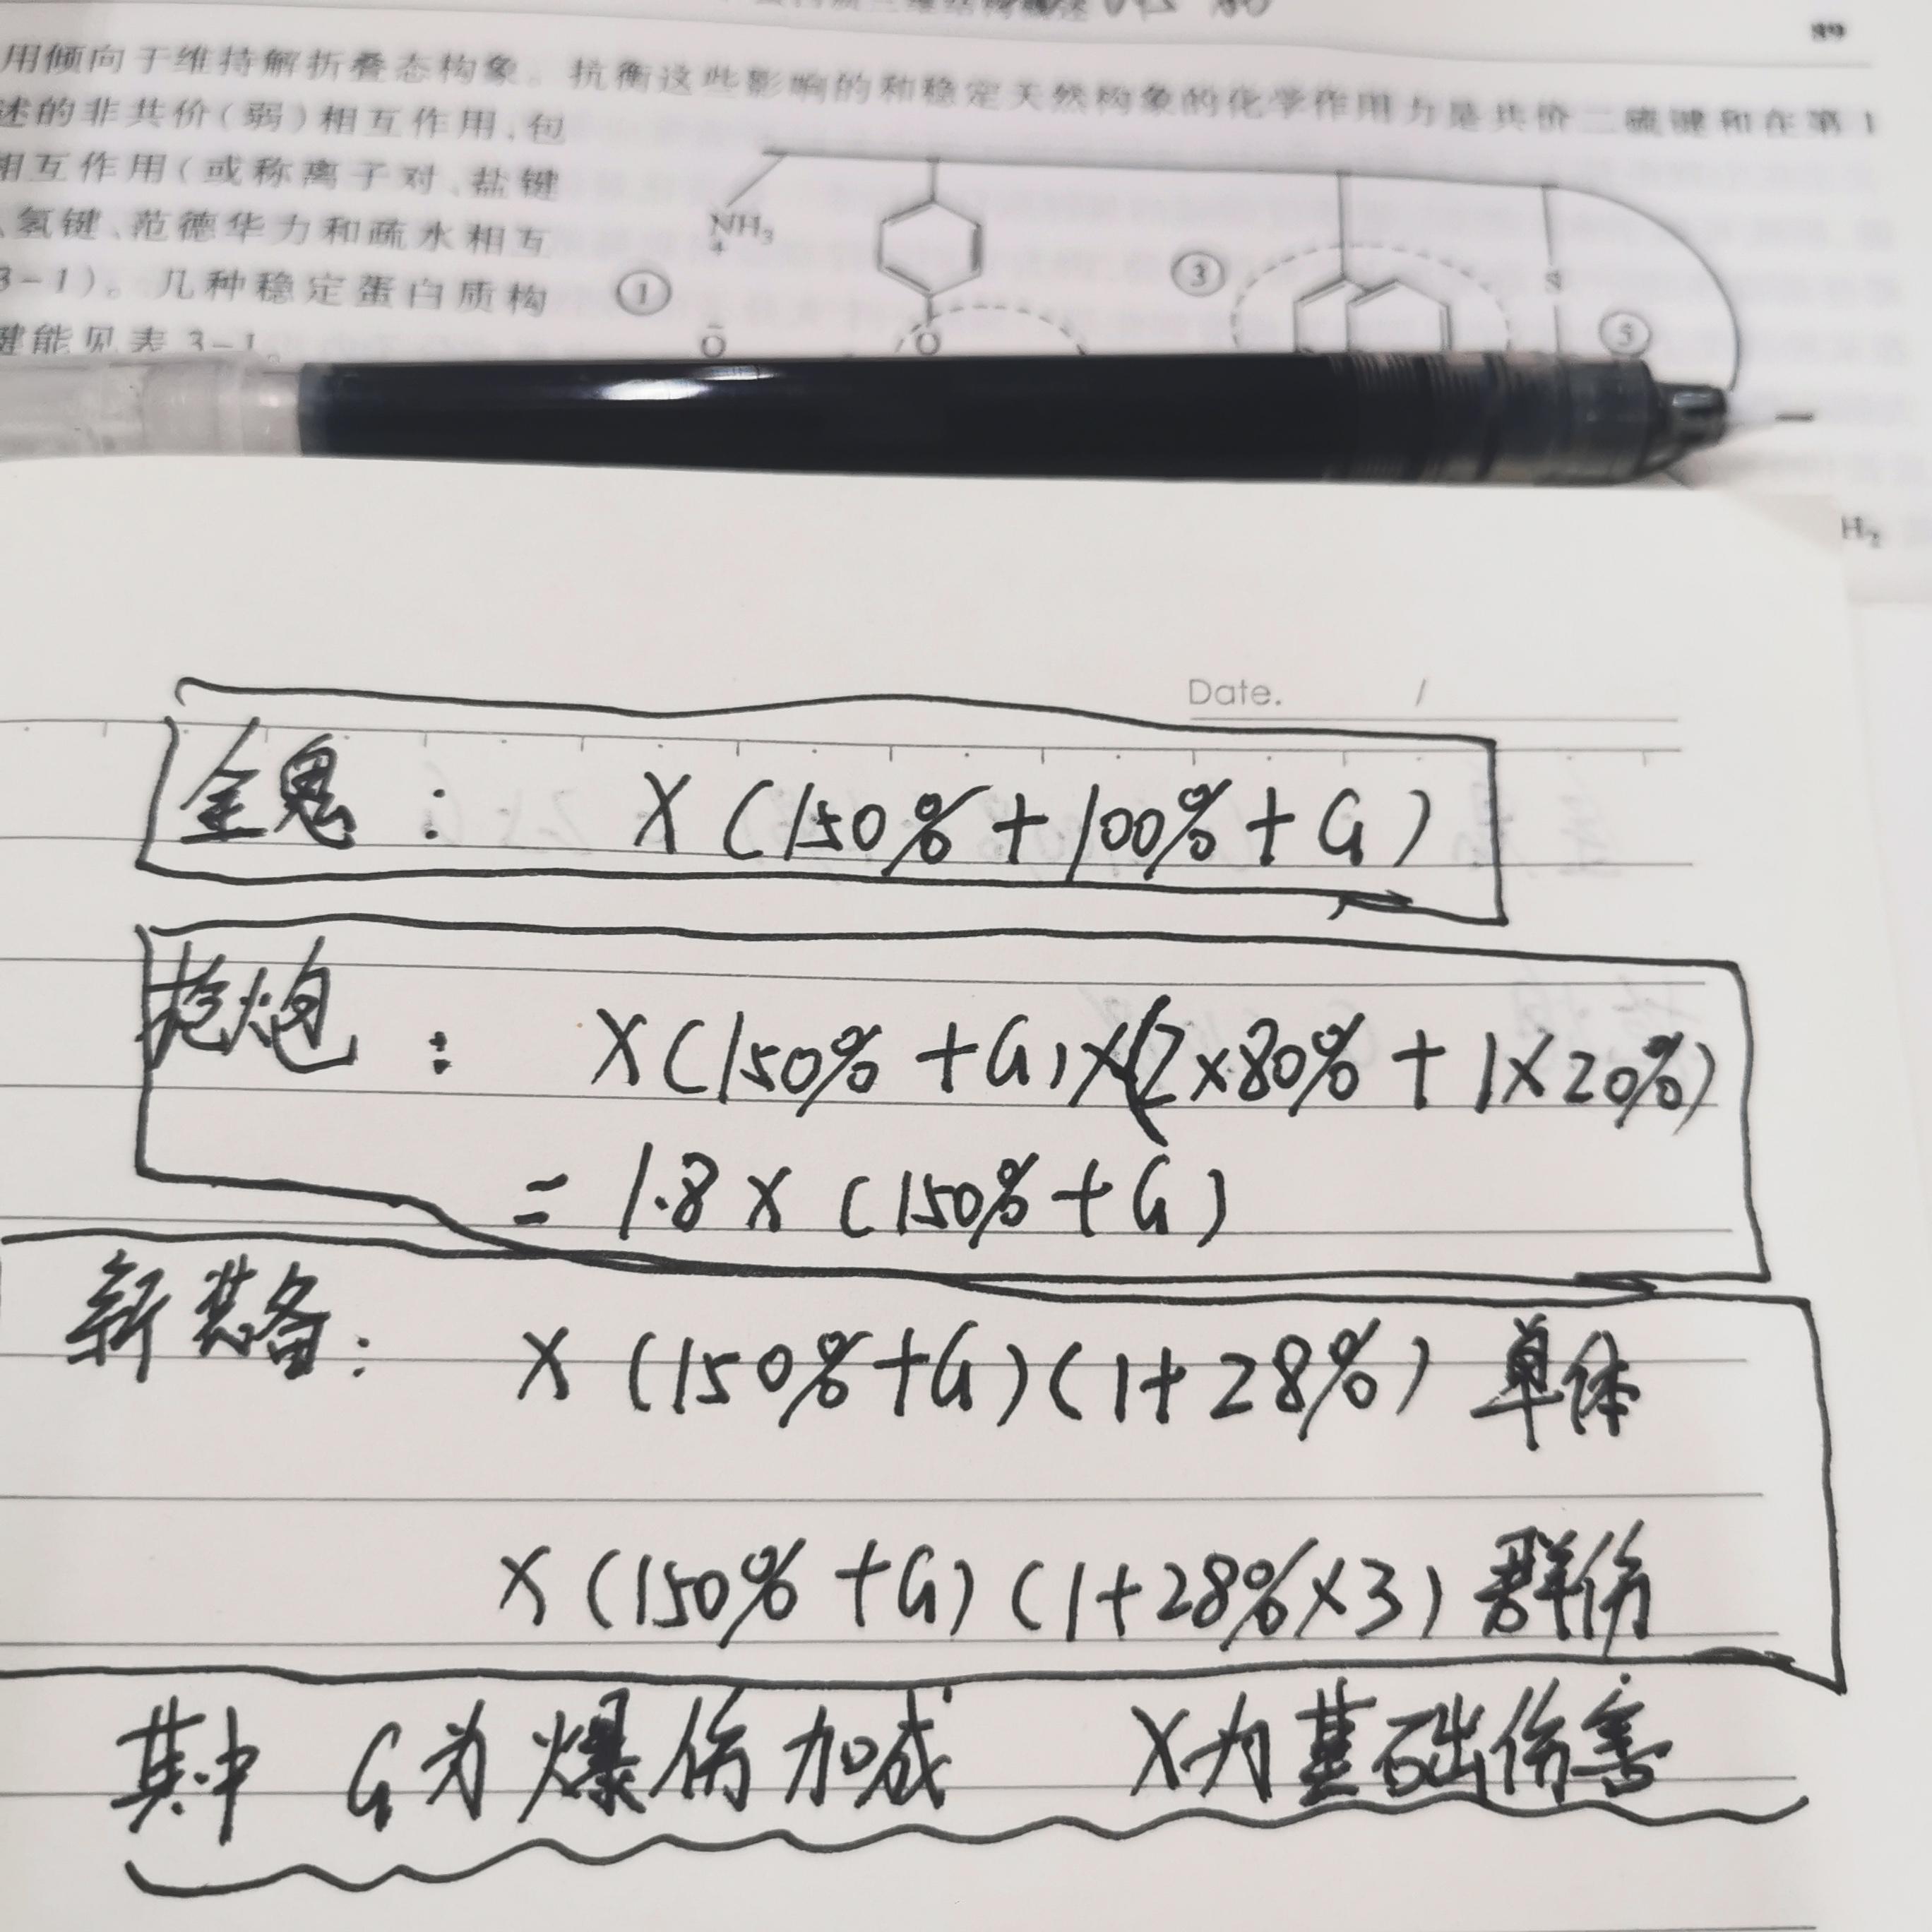 89
用倾向于维持解折叠态构象。抗衡这些影响的和稳定天然构象的化学作用力是共价二硫键和在第1
述的非共价(弱)相互作用,包
相互作用(或称离子对、盐键
、氢键、范德华力和疏水相互
3-1)。几种稳定蛋白质构
键能见表3-1。
NH₃
+
①
③
S
⑤
Ō
O
H₂
Date. /
全鬼： X(150%+100%+G)
枪炮： X(150%+G)×(2×80%+1×20%)
=1.8X(150%+G)
新装备： X(150%+G)(1+28%)单体
X(150%+G)(1+28%×3)群伤
其中 G为爆伤加成 X为基础伤害